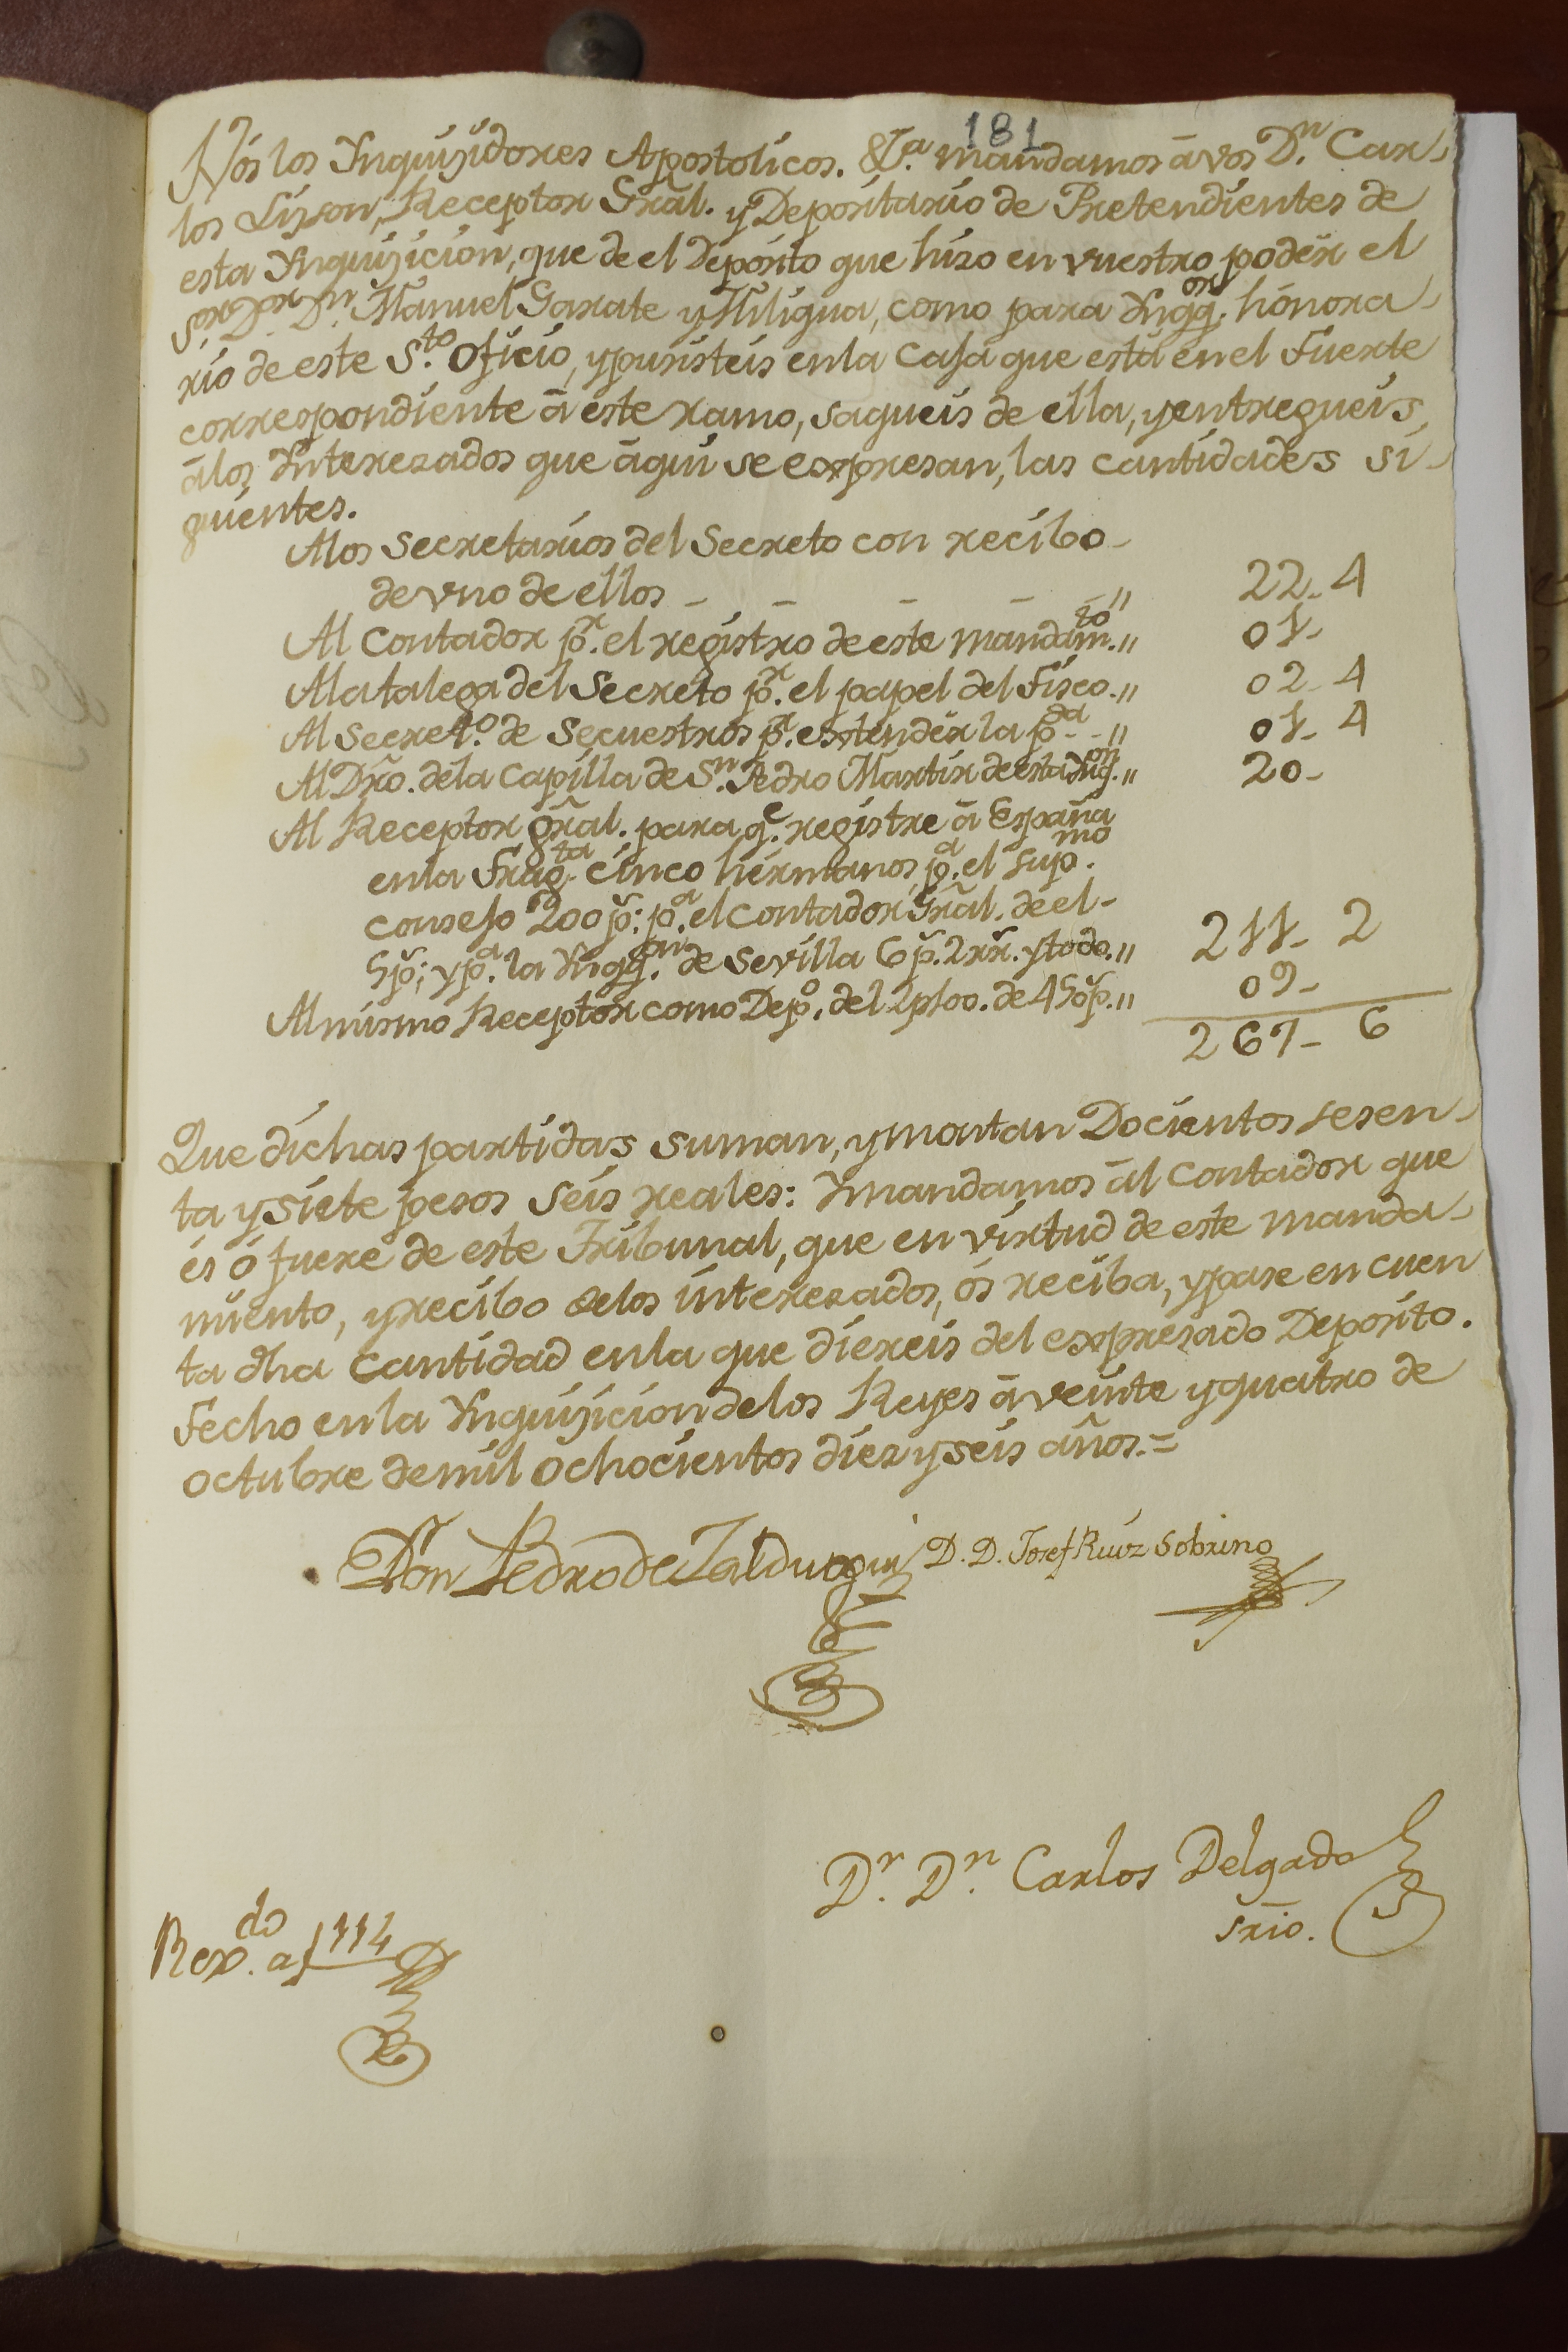 181
Nós los Ynquisidores Apostolicos. &a. mandamos â vos Dn. Car-
los Lison, Receptor Gral. y Depositario de Pretendientes de
esta Ynquisicion, que de el Deposito que hizo en vuestro podér el
Sor. Dor. Dn. Manuel Garate y Hiligua, como para Ynqq.or honora-
rio de este Sto. Oficio, y pusisteis en la Casa que está en el Fuerte
correspondiente â este ramo, saqueis de ella, y entregueis
â los Ynterezados que âqui se expresan, las cantidades si-
guientes.
A los Secretarios del Secreto con recibo-
de vno de ellos - - - - - " 22- 4
Al Contador pr. el registro de este mandam.to " 01-
A la talega del Secreto pr. el papel del Fisco. " 02- 4
Al Secret.o de Secuestros pa. extendér la pda. - - " 01- 4
Al Dro. de la Capilla de Sn. Pedro Martir de esta Ynq.on " 20-
Al Receptor gral. para qe. registre â España
en la Frag.ta Cinco hermanos, pa. el Sup.mo
Consejo 200 p.: pa. el Contador Gral. de el-
5 p.; y pa. la Ynqq.on de Sevilla 6 p. 2 rr. y todo. " 211- 2
Al mismo Receptor como Depo. del 2 p100. de 450 p. " 09-
267- 6
Que dichas partidas suman, y montan Docientos sesen-
ta y siete pesos seis reales: Y mandamos âl Contador que
és ó fuere de este Tribunal, que en virtud de este manda-
miento, y recibo de los interezados, ós reciba, y pase en cuen
ta dha Cantidad en la que diereis del expresado Deposito.
Fecho en la Ynquisicion de los Reyes â veinte y quatro de
octubre de mil ochocientos diez y seis años.=
Don Pedro de Zalduegui D. D. Josef Ruiz Sobrino
Dr. Dn. Carlos Delgado
Srio.
Rexdo. a f 114